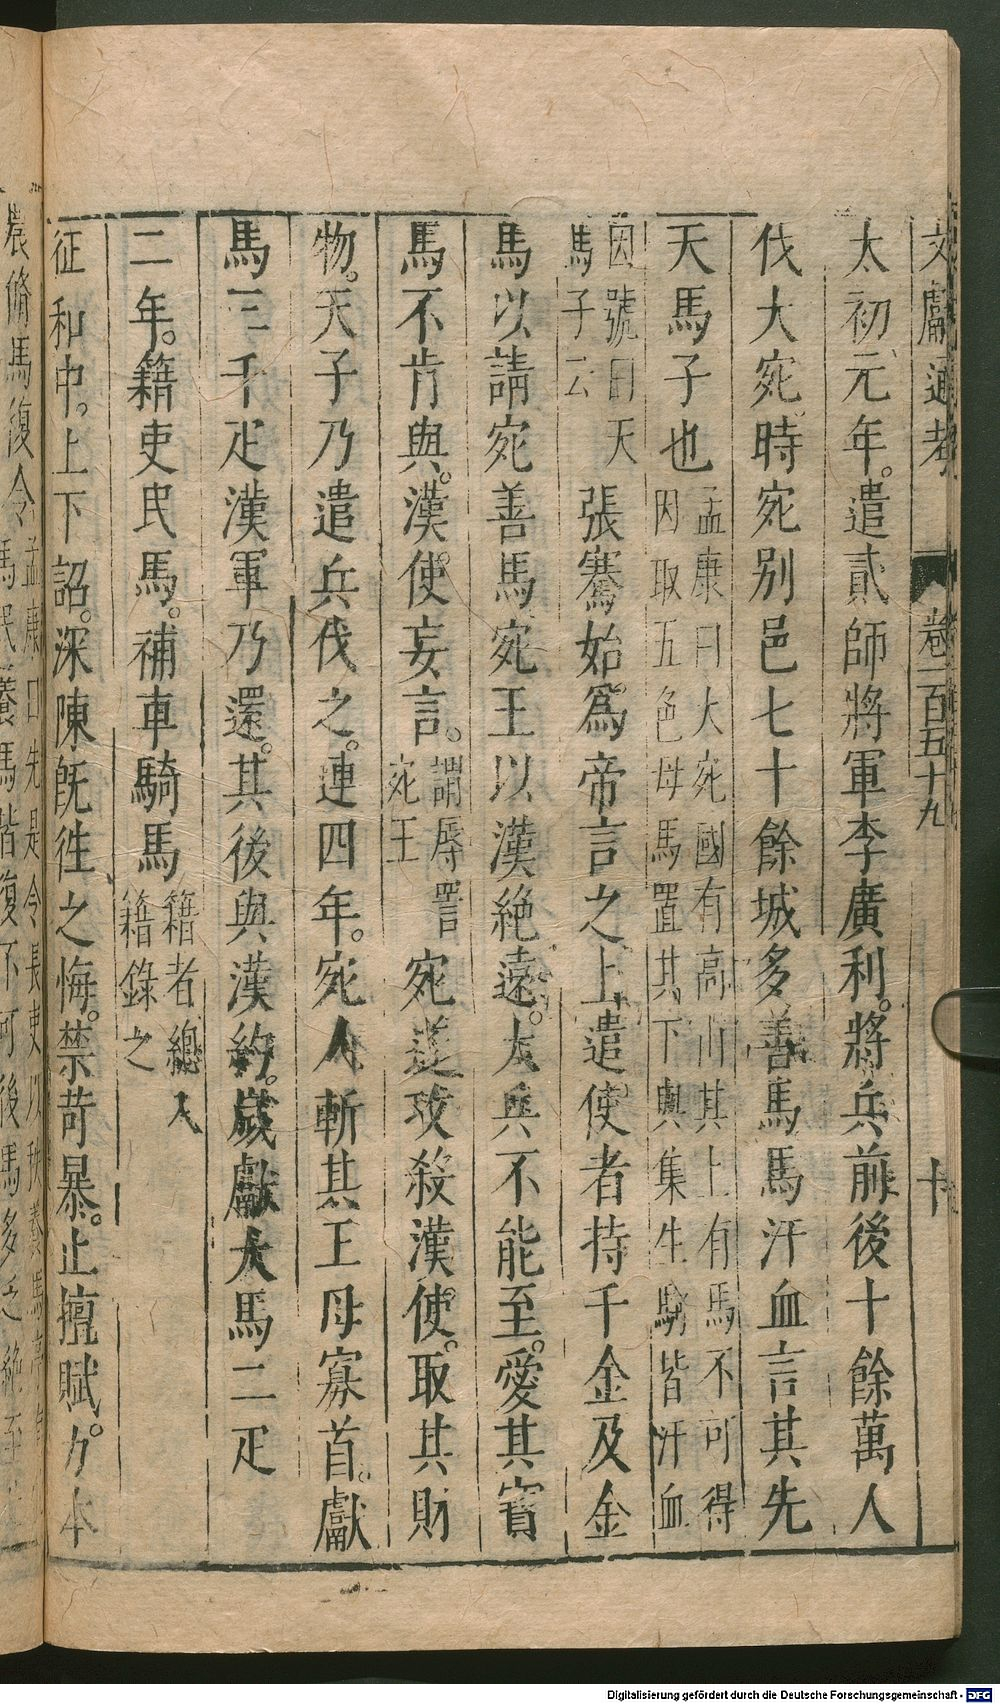 文獻通考 卷一百五十九 十
太初元年。遣貳師將軍李廣利。將兵前後十餘萬人
伐大宛時宛别邑七十餘城多善馬馬汗血言其先
天馬子也
孟康曰大宛國有高山其上有馬不可得
因取五色母馬置其下與集生駒皆汗血
因號曰天
馬子云
張騫始爲帝言之上遣使者持千金及金
馬以請宛善馬宛王以漢絶遠。大兵不能至。愛其寳
馬不肯與。漢使妄言。
謂辱詈
宛王
宛遂攻殺漢使。取其財
物。天子乃遣兵伐之。連四年。宛人斬其王母寡首。獻
馬三千疋漢軍乃還。其後與漢約。歲獻天馬二疋
二年。籍吏民馬。補車騎馬
籍者總入
籍錄之
征和中。上下詔。深陳旣徃之悔。禁苛暴。止擅賦。力本
孟康曰先是令長吏以秩養馬亭有
農脩馬復令
馬民養馬皆復不何後馬多乏絶至
Digitalisierung gefördert durch die Deutsche Forschungsgemeinschaft - DFG